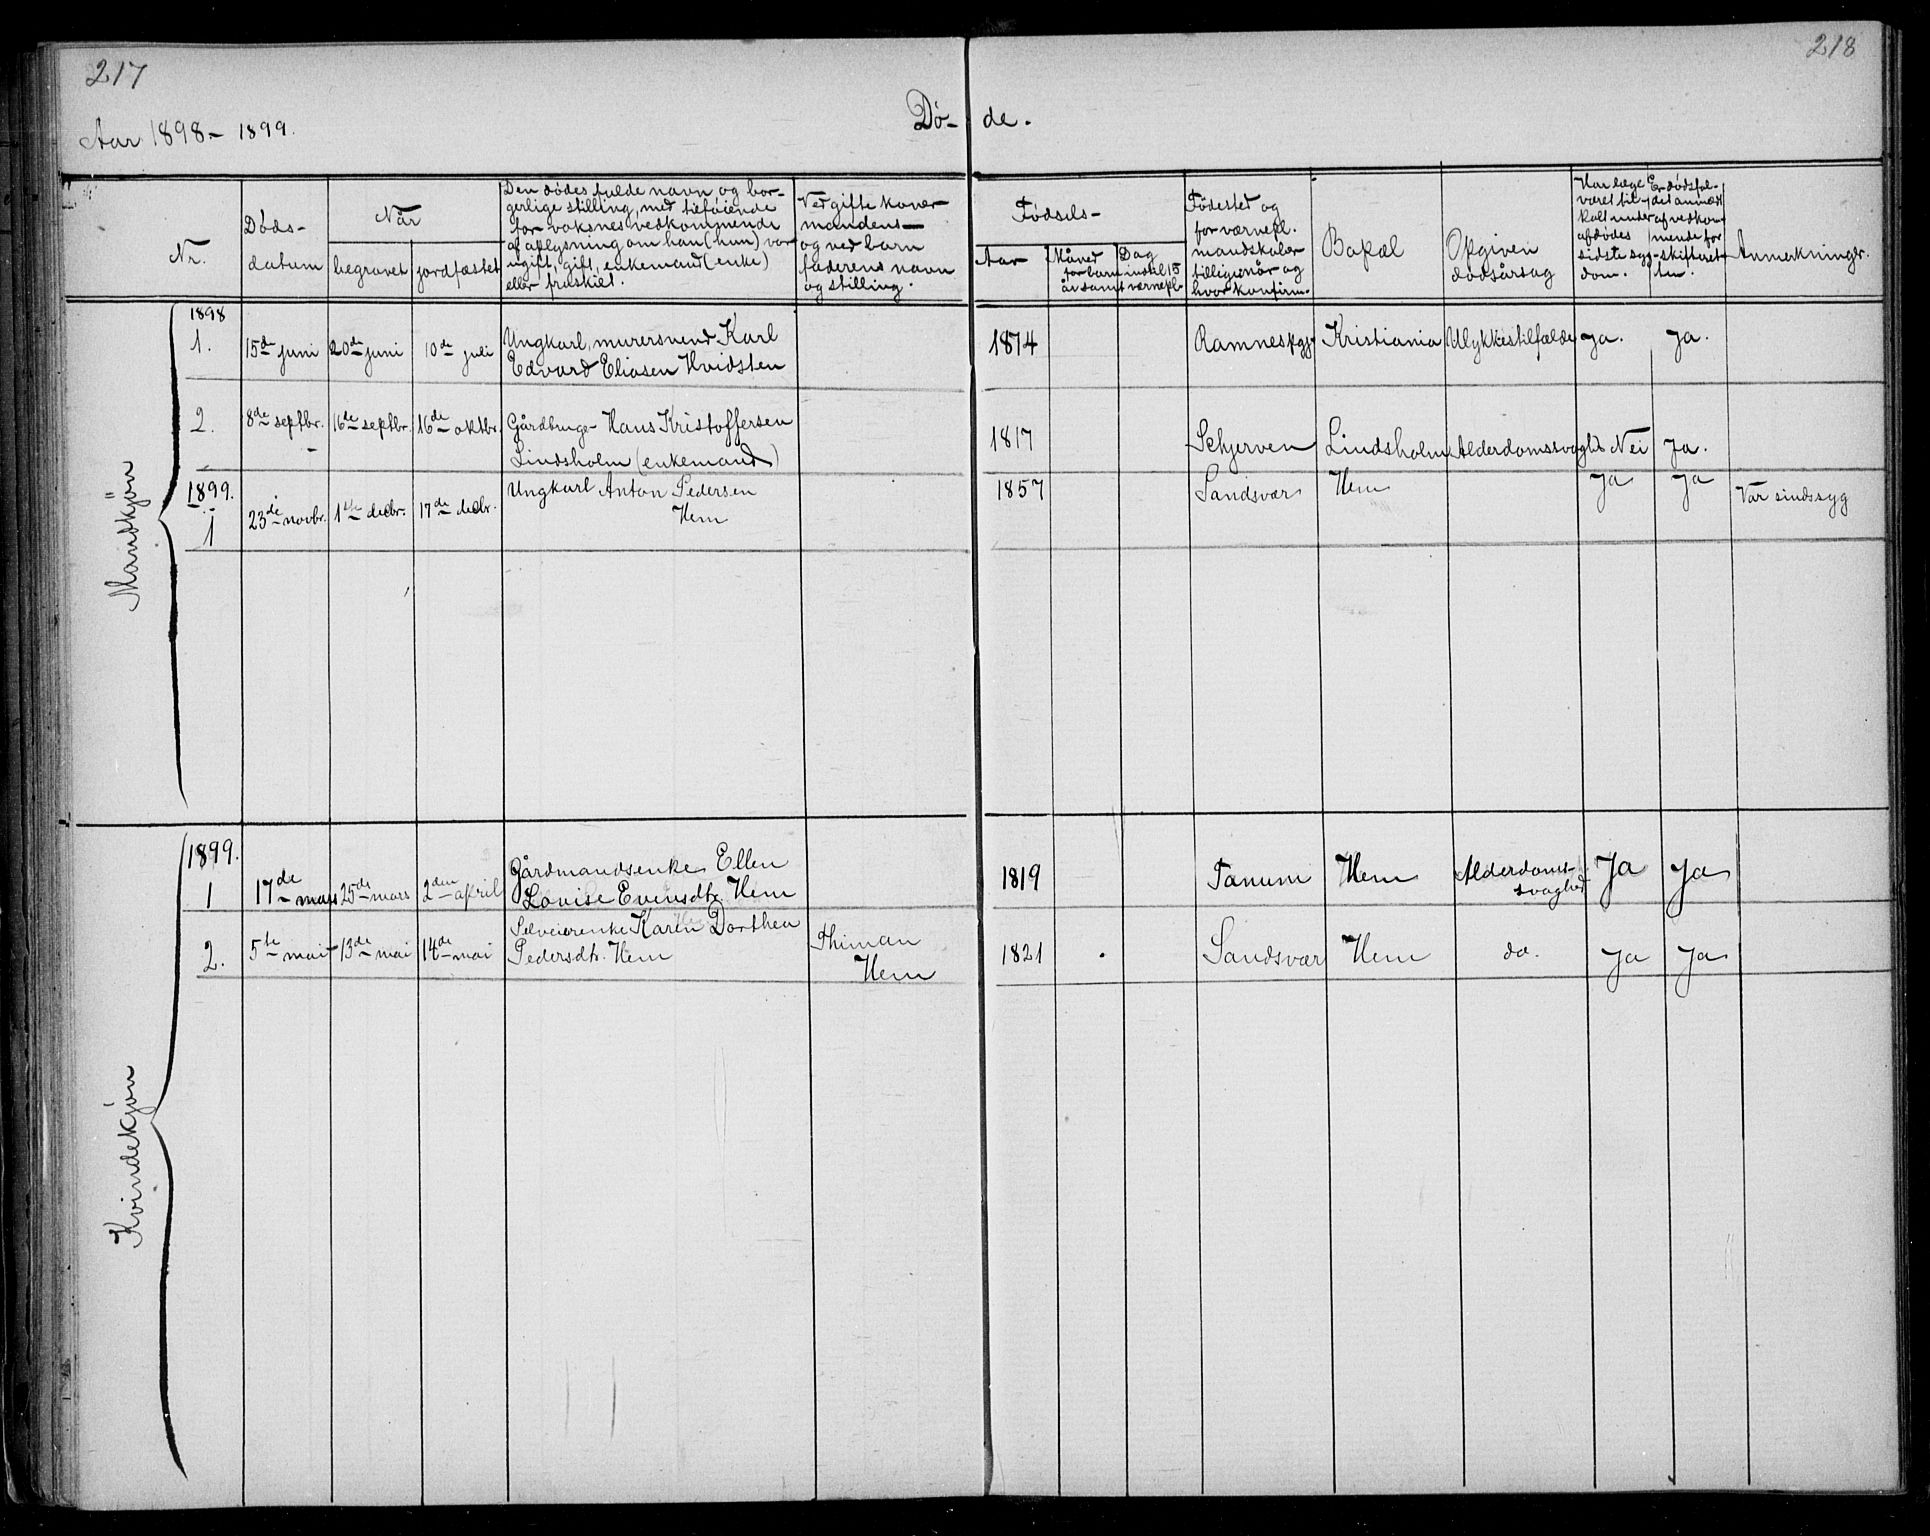 217
218
Aar 1898 - 1899.
Dø- de.
Nr.
Døds-
datum
Når
begravet
jordfæstet
Den dødes fulde navn og bor-
gerlige stilling, med tilføiende
for voksnes vedkommende
af oplysning om han (hun) var
ugift, gift, enkemand (enke)
eller fraskilt.
Ved gifte koner
mandens
og ved barn
faderens navn
og stilling.
Fødsels-
Aar
Måned
Dag
for barn indtil 15
år samt værnepl.
Fødested og
for værnepl.
mandskaber
tillige når og
hvor konfirm.
Bopæl
Opgiven
dødsårsag
Har læge
været til-
kalt under
afdødes
sidste syg-
dom.
Er dødsfal-
det anmeldt
af vedkom-
mende for
skifteret-
ten.
Anmerkninger.
Mandkjøn
1898
1. 15de juni 20de juni 10de juli Ungkarl, murersvend Karl
Edvard Eliasen Hvidsten
1874 Ramnes pgj. Kristiania Ulykkestilfælde Ja. Ja.
2. 8de septbr. 16de septbr. 16de oktbr. Gårdbruge- Hans Kristoffersen
Lindsholm (enkemand)
1817 Schjerven Lindsholm Alderdomssvaghd Nei Ja.
1899.
1 23de novbr. 1ste decbr. 17de decbr. Ungkarl Anton Pedersen
Hem
1857 Sandsvær Hem Ja Ja Var sindssyg
Kvindekjøn
1899.
1 17de mars 25de mars 2den april Gårdmandsenke Ellen
Lovise Evensdtr. Hem
1819 Tanum Hem Alderdoms-
svaghed Ja Ja
2. 5te mai 13de mai 14de mai Selveierenke Karen Dorthea
Pedersdtr. Hem
Thiman
Hem
1821 Sandsvær Hem do. Ja Ja